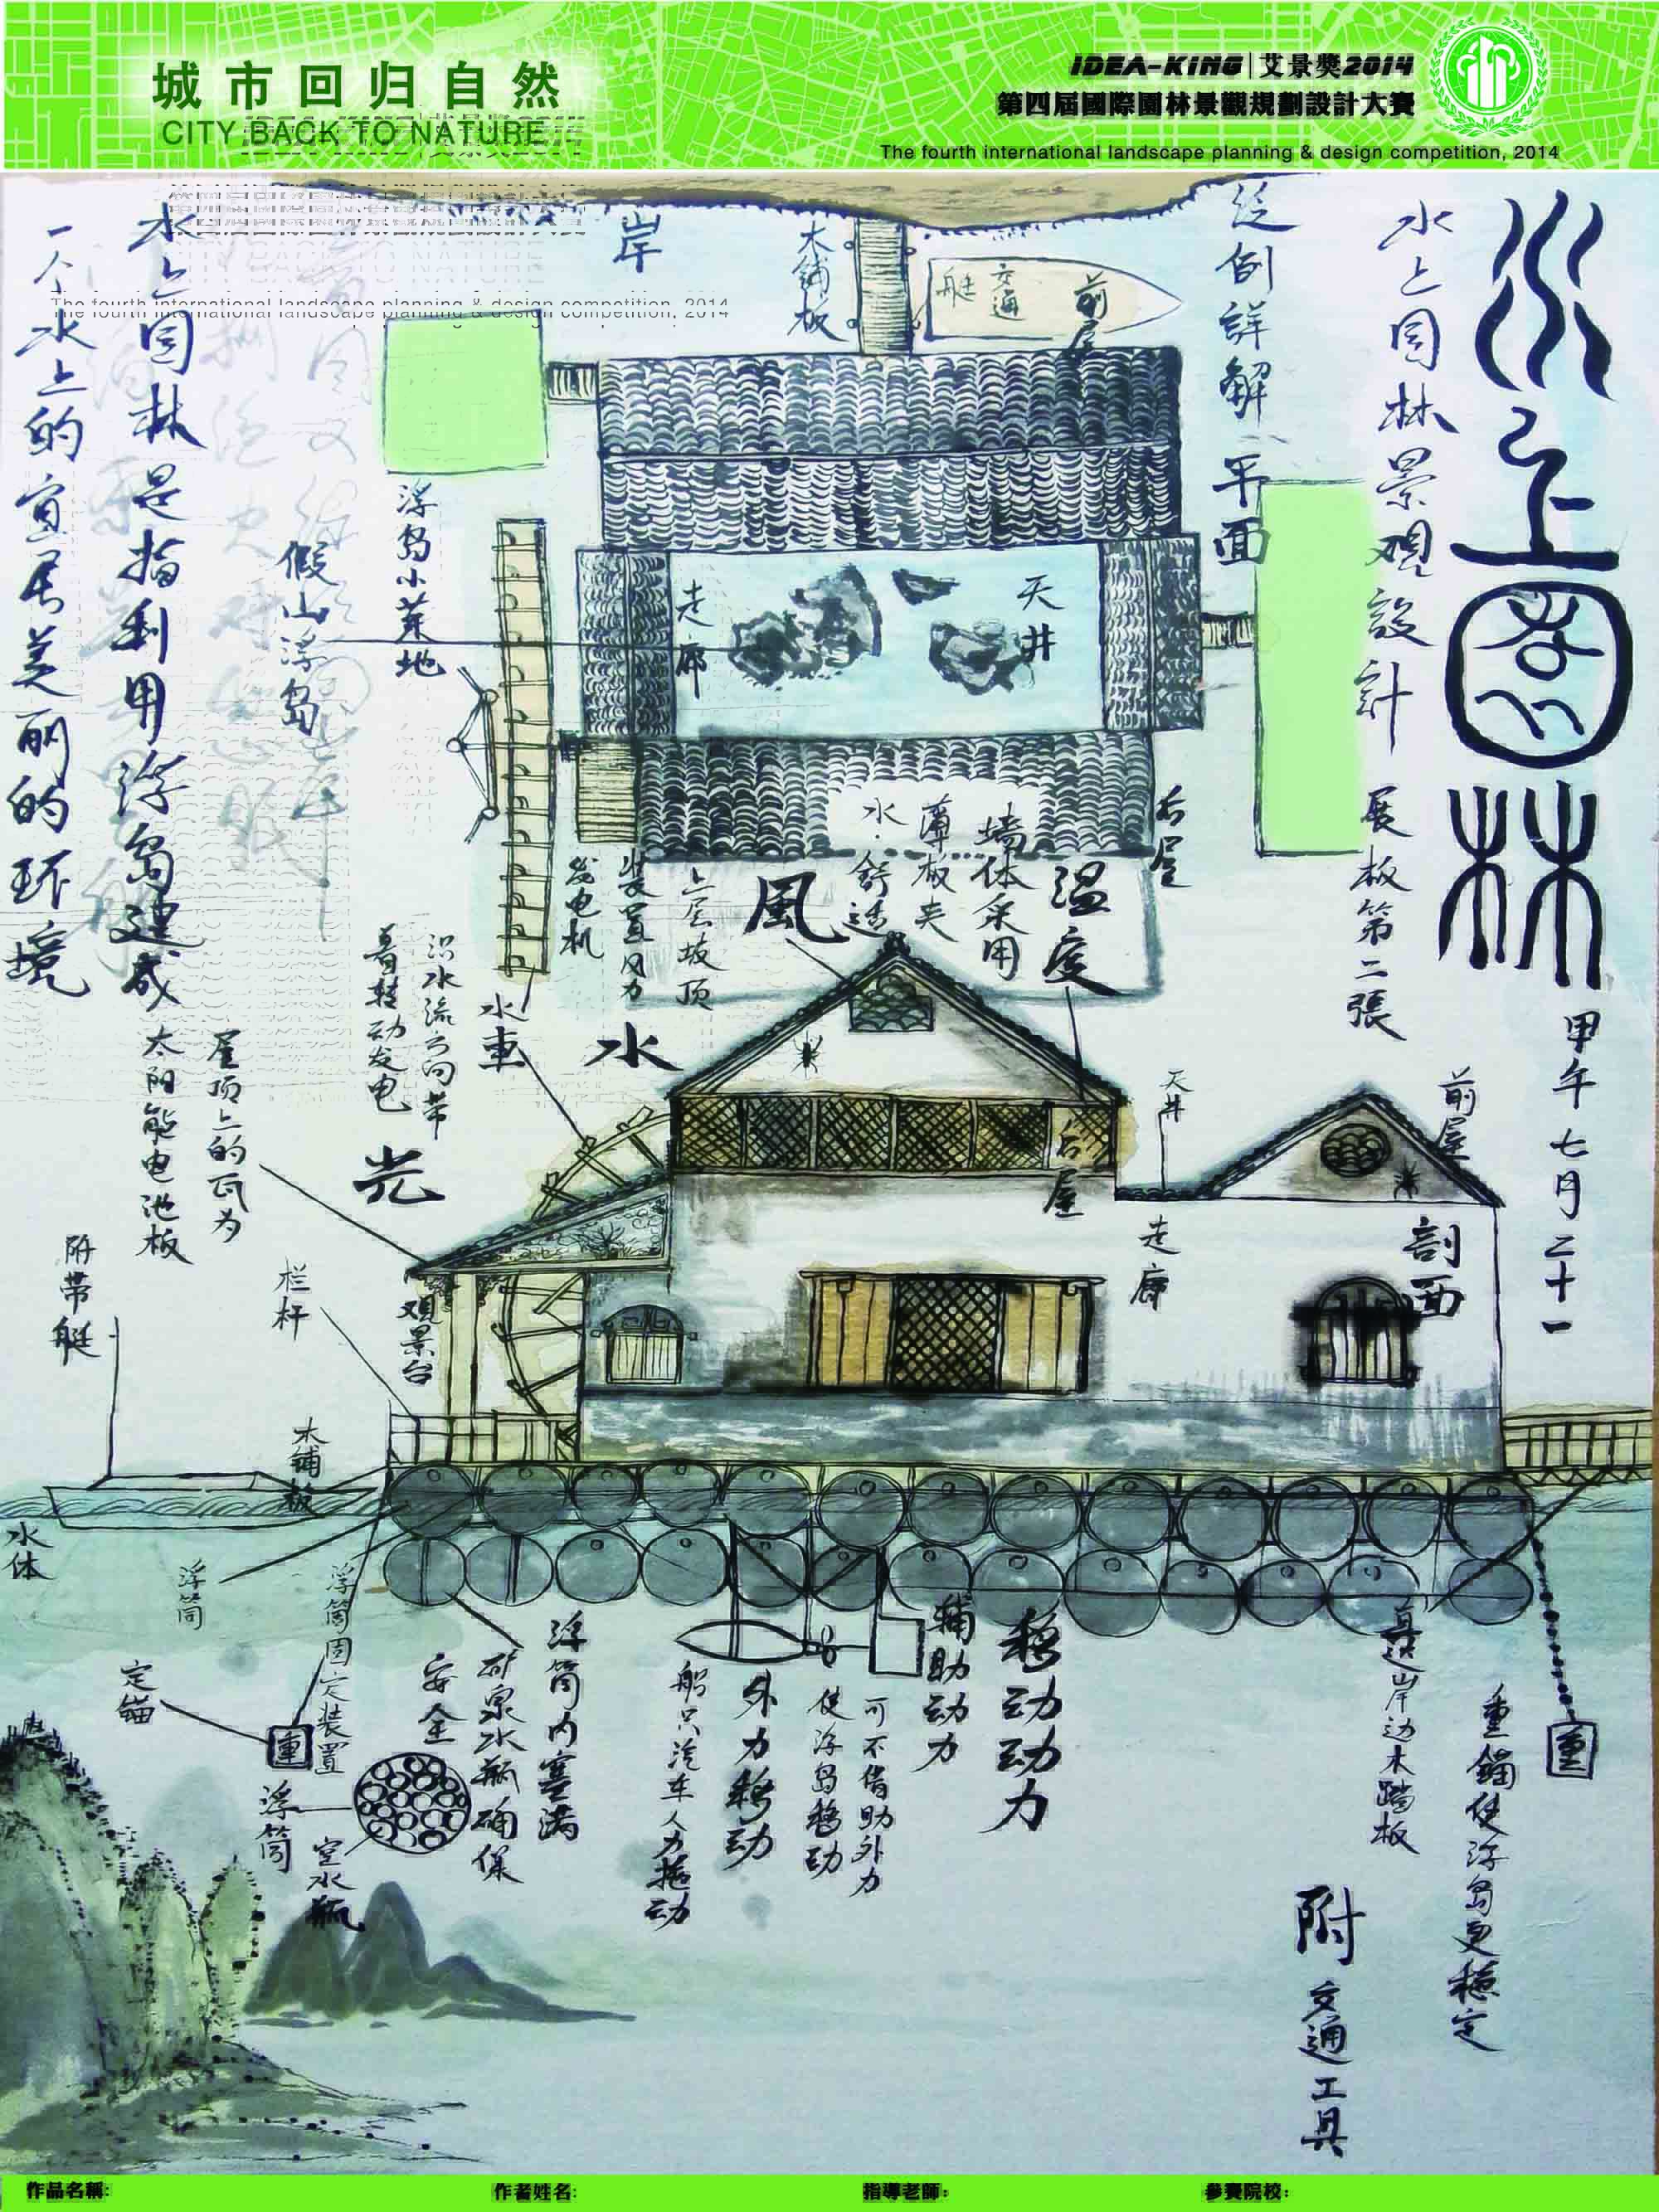 城市回归自然
CITY BACK TO NATURE
IDEA-KING 艾景獎2014
第四屆國際園林景觀規劃設計大賽
The fourth international landscape planning & design competition, 2014
The fourth international landscape planning & design competition, 2014
水上園林
甲午七月二十一
水上园林景观設計 展板第二張
举例詳解 平面
水上园林是指利用浮岛建成
一个水上的宜居美丽的环境
岸
木铺板
交通
艇
前屋
浮岛小菜地
假山浮岛
走廊
天井
右屋
温度
墙体采用
薄板夹
水·舒适
風
上层坡顶
装置风力
发电机
水
水車
识水流方向带
着转动发电
光
屋顶上的瓦为
太阳能电池板
天井
前屋
右屋
走廊
剖面
观景台
栏杆
附带艇
木铺板
水体
浮筒
浮筒固定装置
定锚
重
浮筒
空水瓶
浮筒内塞满
矿泉水瓶确保
安全
移动动力
辅助动力
可不借助外力
使浮岛移动
外力移动
船只汽车人力拖动
岸边木踏板
重
重錨使浮岛更穩定
附 交通工具
作品名稱:
作者姓名:
指導老師:
參賽院校: